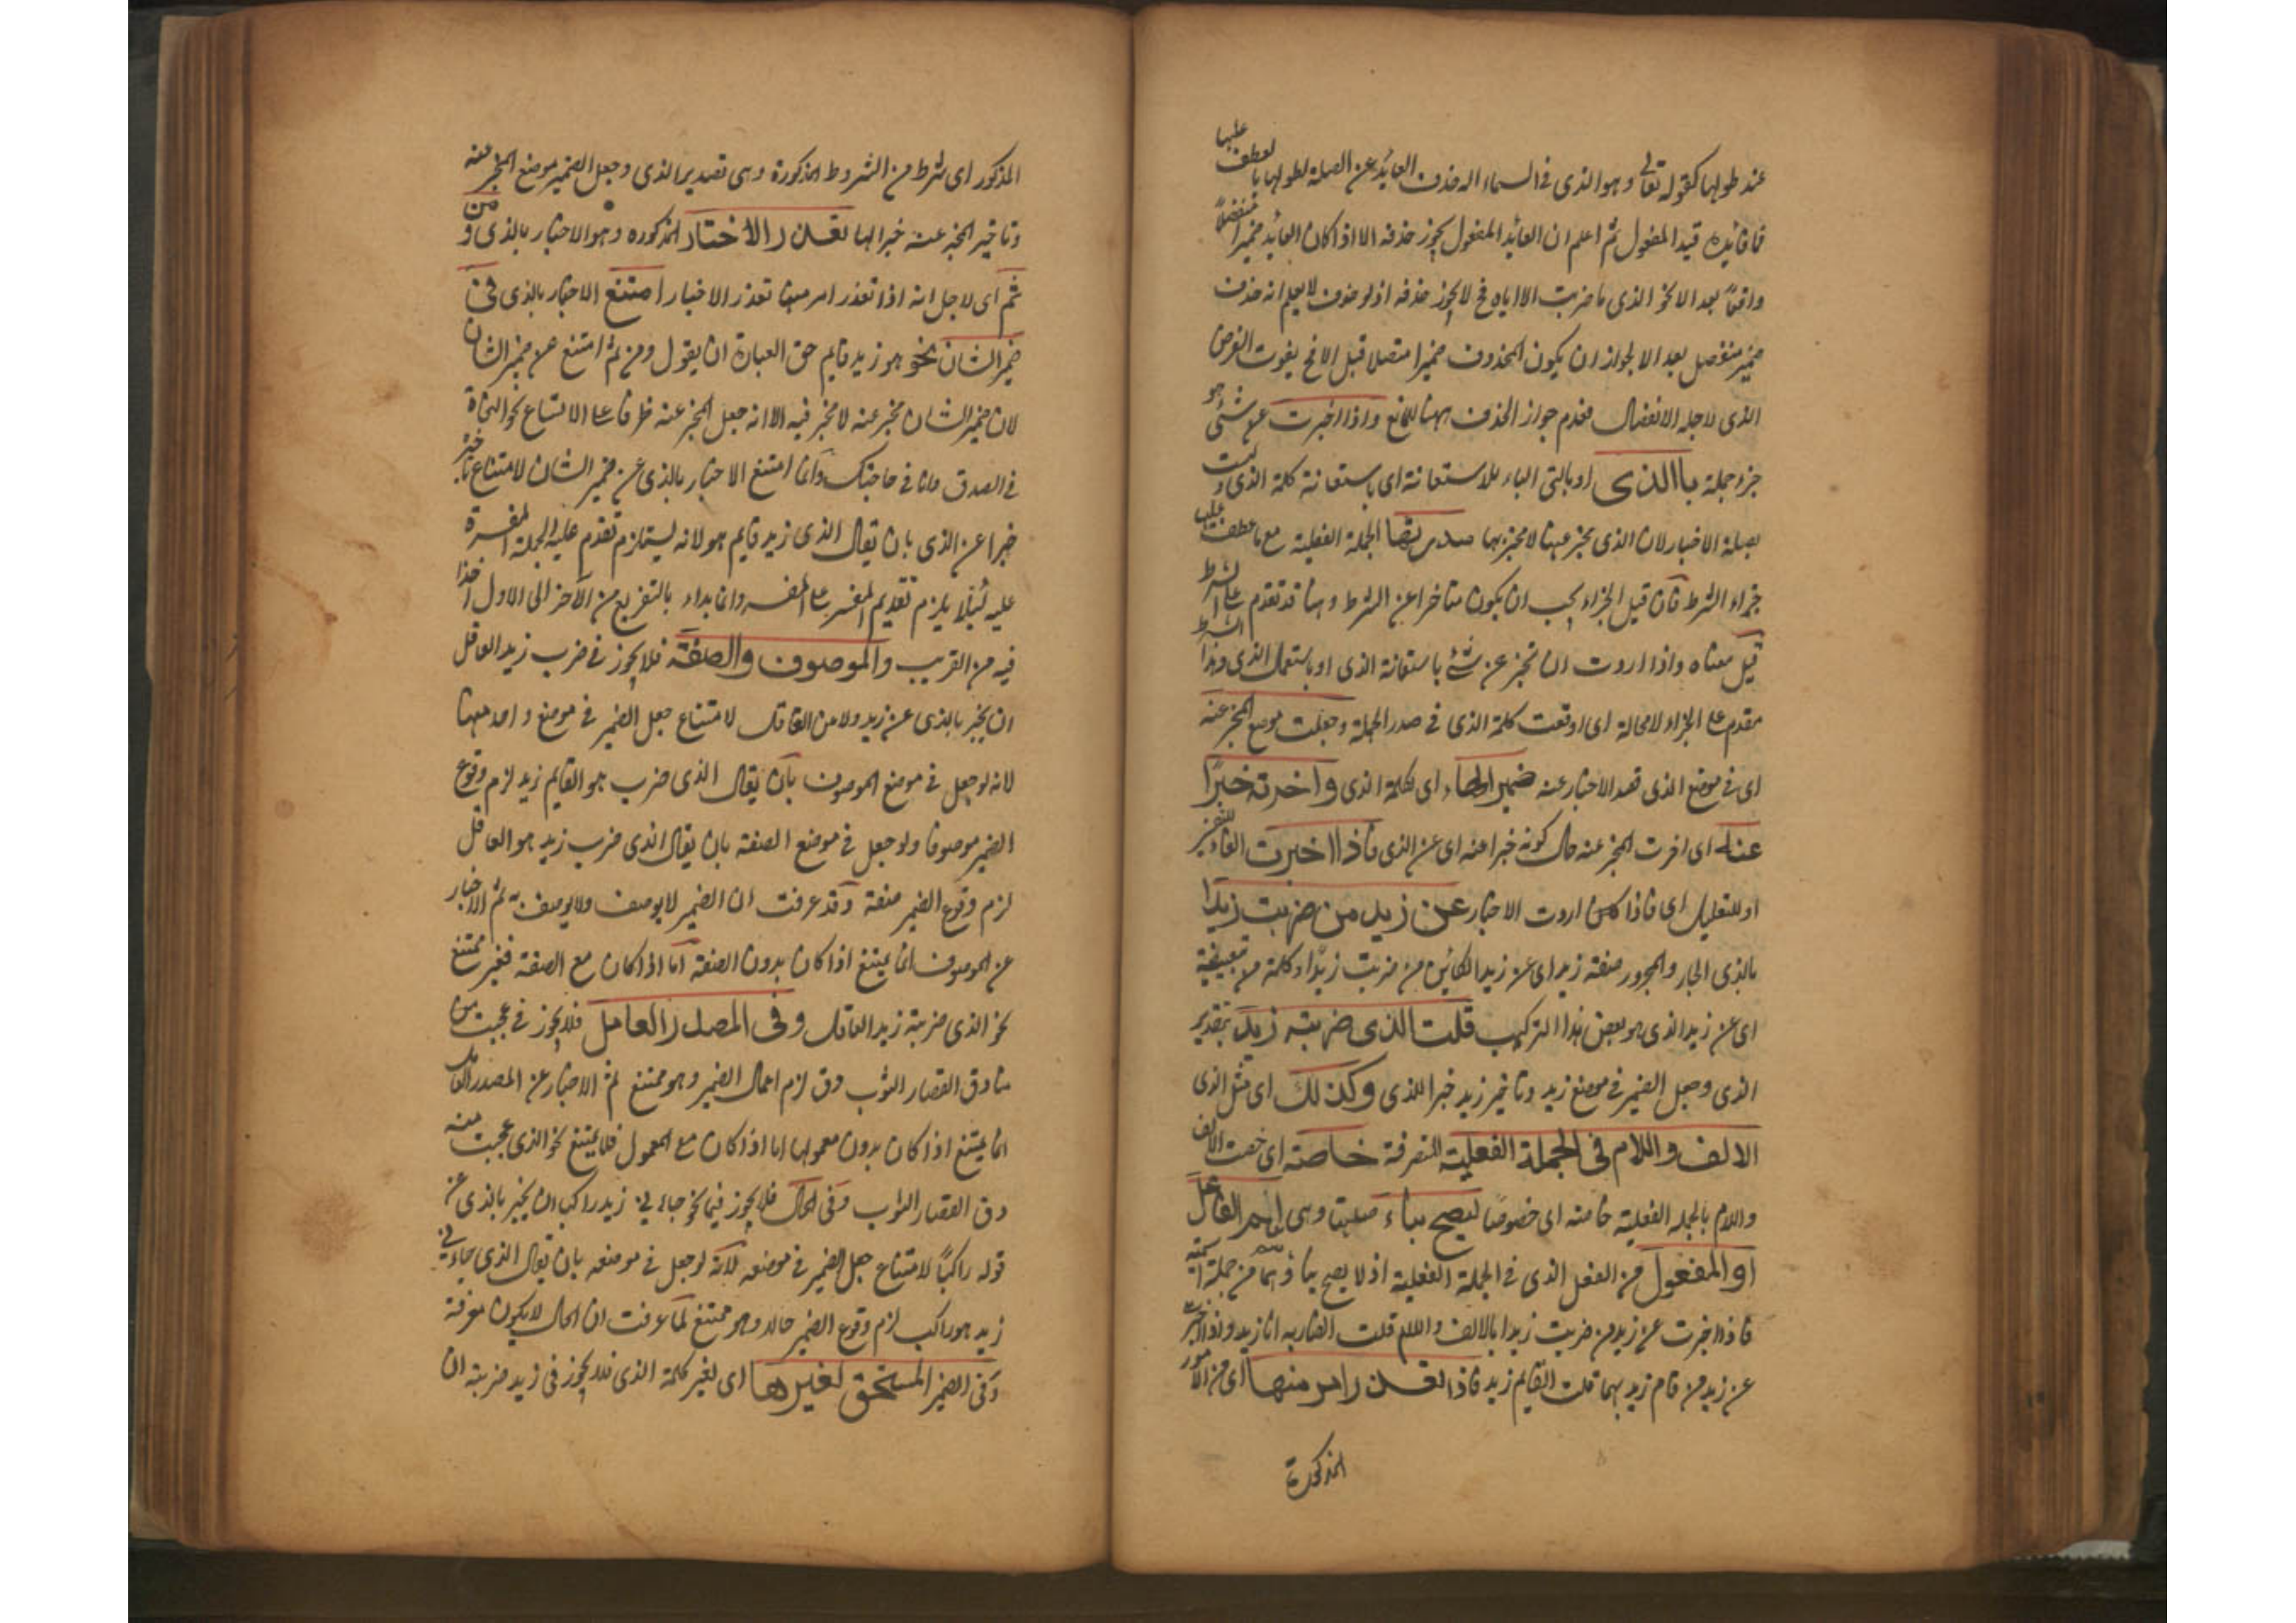 عند طولها كقوله تعالى وهو الذى فى السماء اله حذف العايد عن الصلة لطولها بالعطف عليها
فافائدة قيد المفعول ثم اعلم ان العائد المفعول يجوز حذفه الا اذا كان العائد ضميرا منفصلاً
واقعاً بعد الا نحو الذى ما ضربت الا اياه فح لا يجوز حذفه اذ لو حذف لا يعلم انه حذف
ضمير منفصل بعد الا لجواز ان يكون المحذوف ضميرا متصلا قبل الا فح يفوت الغرض
الذى لاجله الانفصال فعدم جواز الحذف ههنا للمانع واذا اخبرت عن شئ هو
جزء جملة باالذى او بالتى الباء للاستعانة اى باستعانة كلمة الذى وليست
بصلة الاخبار لان الذى يخبر عنها لا مخبر بها صدرتها الجملة الفعلية مع ما عطف عليها
جزاء الشرط فان قيل الجزاء يجب ان يكون متاخرا عن الشرط وهنا قد تقدم على الشرط
قيل معناه واذا اردت ان تخبر عن شئ باستعانة الذى او باستعمال الذى وهذا الشرط
مقدم على الجزاء لا محالة اى اوقعت كلمة الذى فى صدر الجملة وجعلت موضع المخبر عنه
اى فى موضع الذى قصد الاخبار عنه ضميرا لها اى لكلمة الذى واخرته خبرًا
عنه اى اخرت المخبر عنه حال كونه خبرا عنه اى عن الذى فاذا اخبرت الفاء للتفسير
او للتعليل اى فاذا اردت الاخبار عن زيد من ضربت زيدا
بالذى الجار والمجرور صفة زيد اى عن زيد الكائن من ضربت زيدًا وكلمة من تبعيضية
اى عن زيد الذى هو بعض هذا التركيب قلت الذى ضربته زيد بتقدير
الذى وجعل الضمير فى موضع زيد وتاخير زيد خبرا للذى وكذلك اى مثل الذى
الالف واللام فى الجملة الفعلية المتصرفة خاصة اى خصت الالف
واللام بالجملة الفعلية خاصة اى خصوصًا ليصح بناء صلتها وهى اسم الفاعل
او المفعول من الفعل الذى فى الجملة الفعلية اذ لا يصح بناؤهما من جملة اسمية
فاذا اخبرت عن زيد من ضربت زيدا بالالف واللام قلت الضاربه انا زيد ولو اخبرت
عن زيد من قام زيد بهما قلت القايم زيد فاذا تعذر امر منها اى من الامور
المذكورة
المذكور اى شرط من الشروط المذكورة وهى تصدير الذى وجعل الضمير موضع المخبر عنه
وتاخير المخبر عنه خبرا لها تعذر الاخبار المذكوره وهو الاخبار بالذى ومن
ثم اى لاجل انه اذا تعذر امر منها تعذر الاخبار امتنع الاخبار بالذى فى
ضمير الشان نحو هو زيد قايم حق العبارة ان يقول ومن ثم امتنع عن ضمير الشان
لان ضمير الشان مخبر عنه لا مخبر فيه الا انه جعل المخبر عنه ظرفا على الاتساع نحو النجاة
فى الصدق وانا فى حاجتك وانما امتنع الاخبار بالذى عن ضمير الشان لامتناع تاخيره
خبرا عن الذى بان يقال الذى زيد قايم هو لانه يستلزم تقدم عليه الجملة المفسرة
عليه لئلا يلزم تقديم المفسر على المفسر وانما بداء بالتفريع من الآخر الى الاول اخذا
فيه من القريب والموصوف والصفة فلا يجوز فى ضرب زيد العاقل
ان يخبر بالذى عن زيد ولا من العاقل لامتناع جعل الضمير فى موضع واحد منهما
لانه لو جعل فى موضع الموصوف بان يقال الذى ضرب هو القايم زيد لزم وقوع
الضمير موصوفا ولو جعل فى موضع الصفة بان يقال الذى ضرب زيد هو العاقل
لزم وقوع الضمير صفة وقد عرفت ان الضمير لا يوصف ولا يوصف به ثم الاخبار
عن الموصوف انما يمتنع اذا كان بدون الصفة اما اذا كان مع الصفة فغير ممتنع
نحو الذى ضربته زيد العاقل وفى المصدر العامل فلا يجوز فى عجبت من
دق القصار الثوب لزم اعمال الضمير وهو ممتنع ثم الاخبار عن المصدر العامل
انما يمتنع اذا كان بدون معمولها اما اذا كان مع المعمول فلا يمتنع نحو الذى عجبت منه
دق القصار الثوب وفى الحال فلا يجوز فى نحو جاءنى زيد راكبا ان يخبر بالذى عن
قوله راكبًا لامتناع جعل الضمير فى موضعه لانه لو جعل فى موضعه بان يقال الذى جاءنى
زيد هو راكب لزم وقوع الضمير حالا وهو ممتنع لما عرفت ان الحال لا يكون معرفة
وفى الضمير المستحق لغيرها اى لغير كلمة الذى فلا يجوز فى زيد ضربته ان